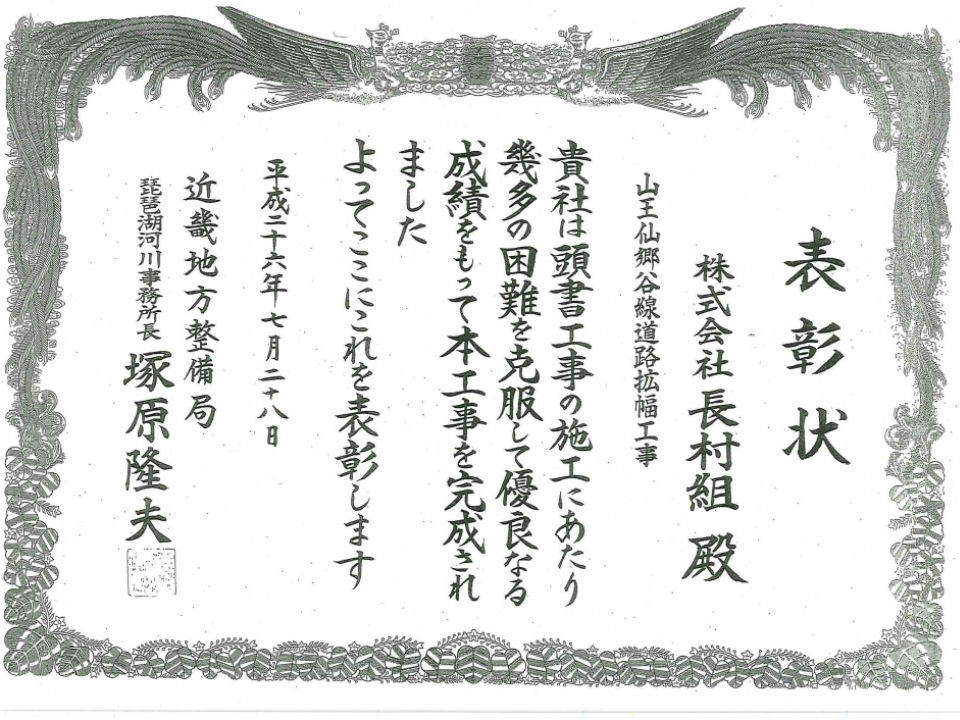 表彰状
株式会社長村組 殿
山王仙郷谷線道路拡幅工事
貴社は頭書工事の施工にあたり
幾多の困難を克服して優良なる
成績をもって本工事を完成され
ました
よってここにこれを表彰します
平成二十六年七月二十八日
近畿地方整備局
琵琶湖河川事務所長 塚原隆夫